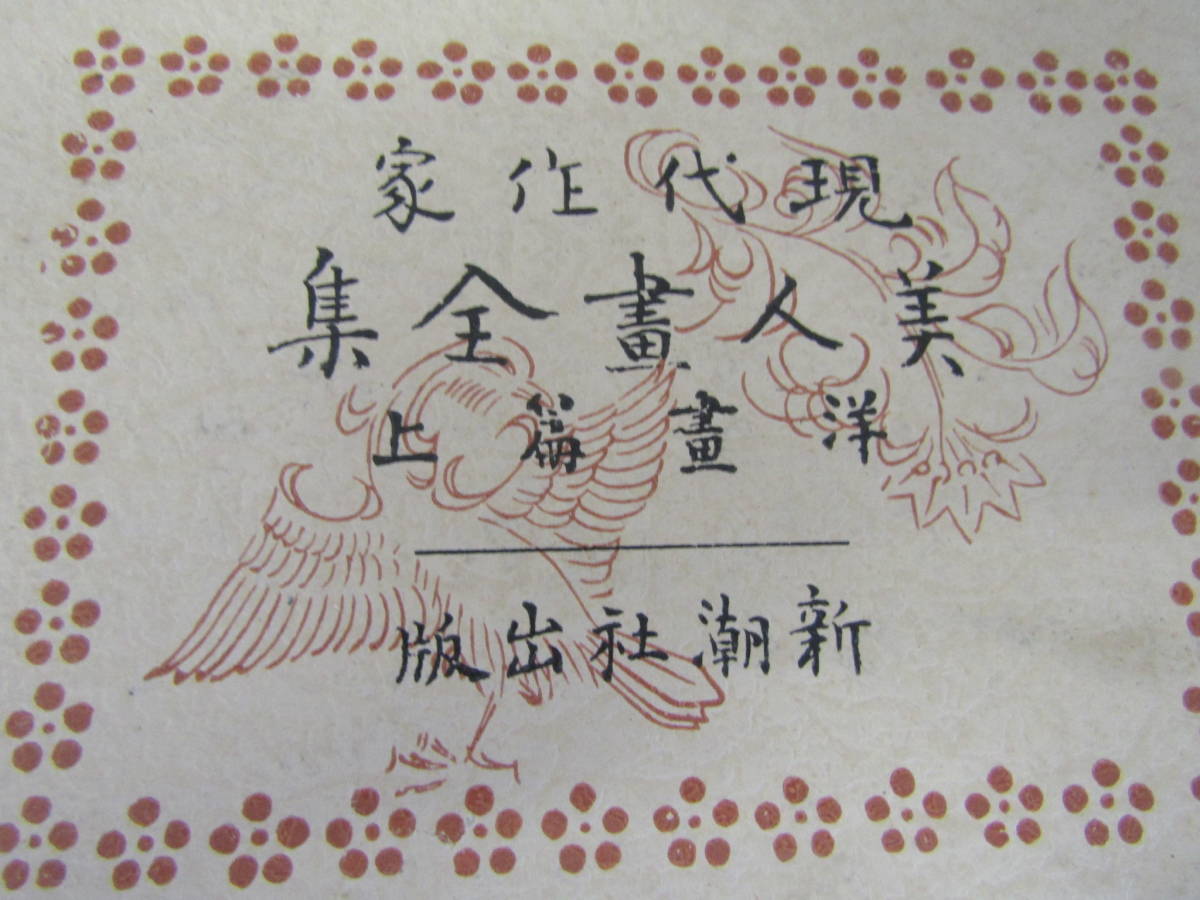 現代作家
美人畫全集
洋畫篇上
新潮社出版